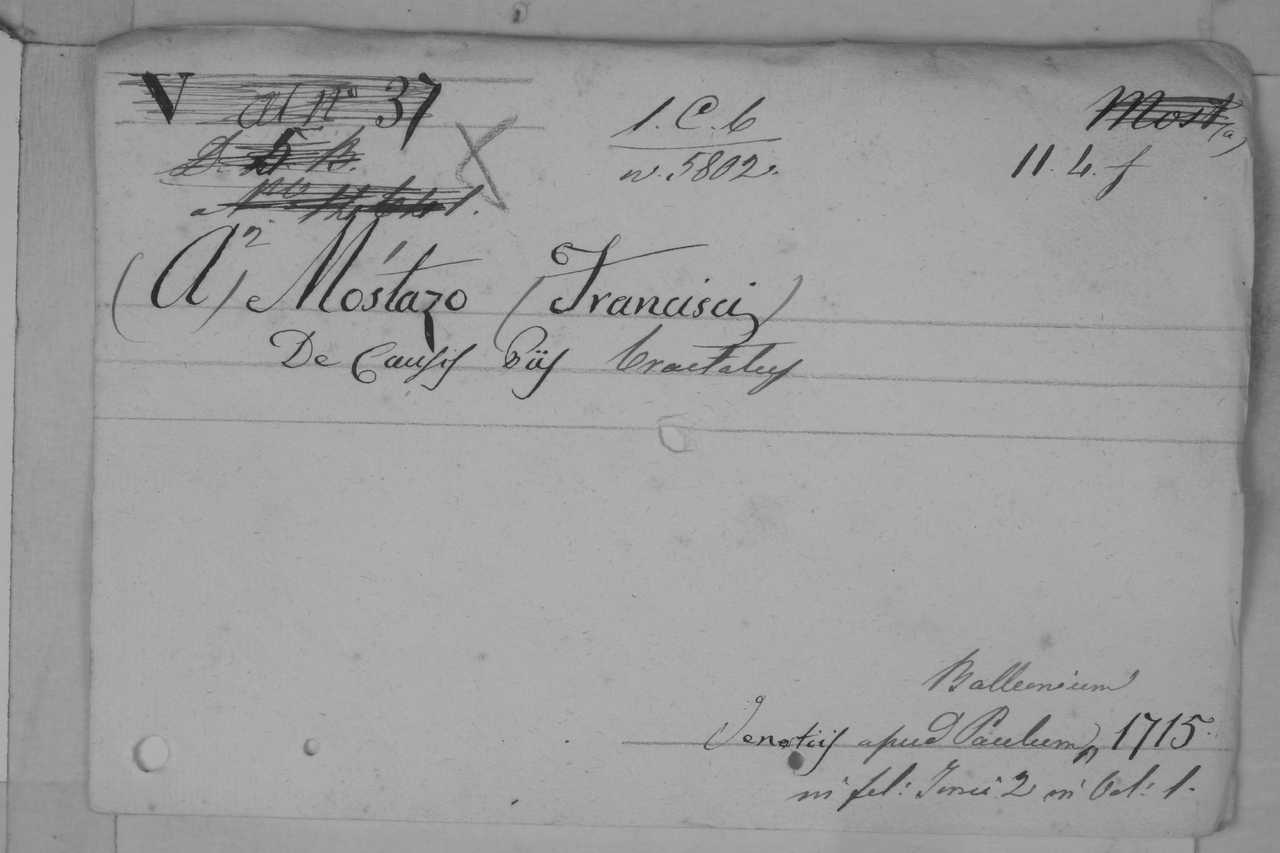 V al nº 37
D. 5. B.
1. C. 6
n. 5802.
Most(a)
11. 4. f
(A)² Mostazo (Francisci)
De Causis Piis Tractatus
Balleonium
Venetiis apud Paulum, 1715.
in fol: Tomi 2 in Vol: 1.